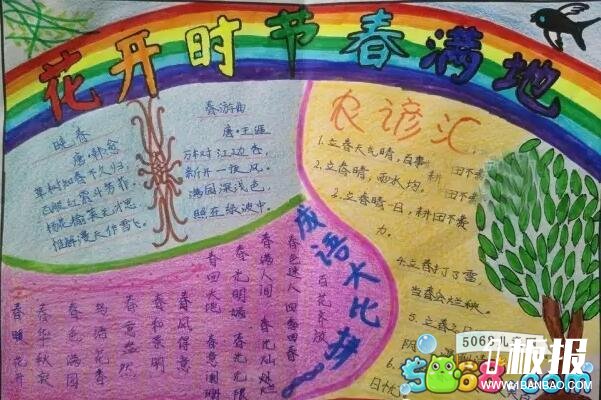 花开时节春满地
晚春
唐·韩愈
草树知春不久归，
百般红紫斗芳菲。
杨花榆荚无才思，
惟解漫天作雪飞。
春游曲
唐·王涯
万树江边杏，
新开一夜风。
满园深浅色，
照在绿波中。
农谚汇
1.立春天气晴，百事
耕田不费
2.立春晴，雨水均。
3.立春晴一日，耕田不费
力。
4.立春打了雷，
当春会烂秧。
5.立春之日
阴
6.
日忧
成语大比拼
百花齐放
春色迷人
春满人间
春光明媚
春回大地
春风得意
春和景明
春意盎然
鸟语花香
春色满园
春华秋实
春暖花开
四季如春
春光灿烂
春光无限
春意阑珊
5068儿
板报
5068.com
WWW.41BANBAO.COM